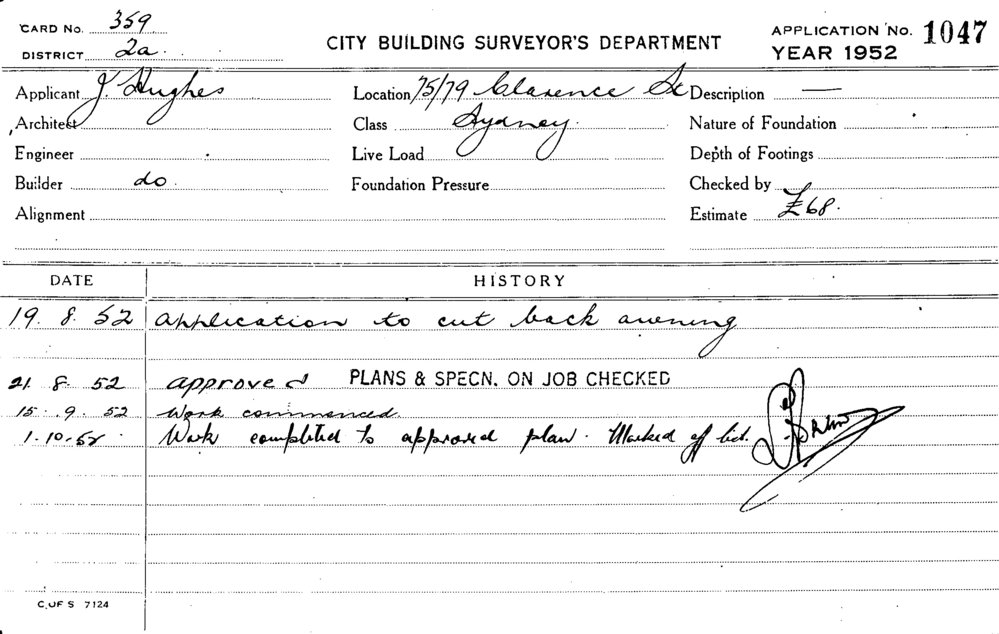 CARD No. 359
DISTRICT 2a.
CITY BUILDING SURVEYOR'S DEPARTMENT
APPLICATION No. 1047
YEAR 1952
Applicant J. Hughes
Location 75/79 Clarence St
Description —
Architect
Class Sydney.
Nature of Foundation
Engineer
Live Load
Depth of Footings
Builder do.
Foundation Pressure
Checked by
Alignment
Estimate £68.
DATE HISTORY
19. 8. 52 application to cut back awning
21. 8. 52 approved PLANS & SPECN. ON JOB CHECKED
15. 9. 52 Work commenced.
1.10.52. Work completed to approved plan. Marked off list.
C. OF S 7124